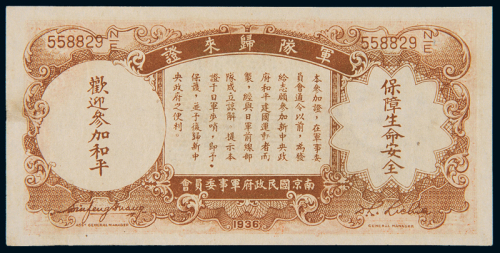 軍隊歸來證
558829 N/E
558829 N/E
保障生命安全
本參加證，在軍事委
員會通令以前，為發
給志願參加新中央政
府和平建國運中者而
製，經與日軍前線部
隊成立諒解，提示本
證于日軍步哨，即予
保護，並予復歸新中
央政府之便利。
歡迎參加和平
南京國民政府軍事委員會
1936
ASST GENERAL MANAGER
GENERAL MANAGER